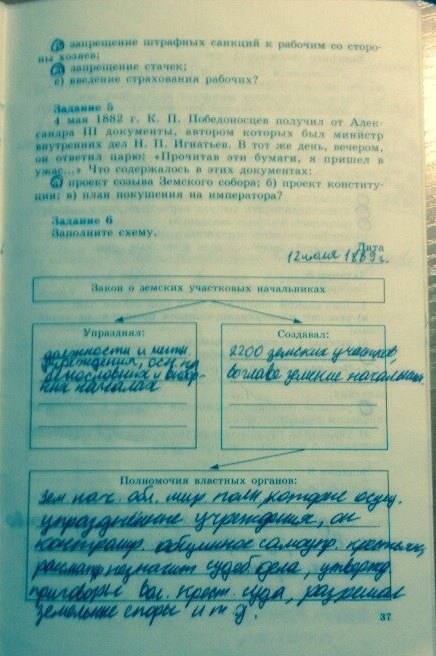 а) запрещение штрафных санкций к рабочим со сторо-
ны хозяев;
запрещение стачек;
с) введение страхования рабочих?
Задание 5
4 мая 1882 г. К. П. Победоносцев получил от Алек-
сандра III документы, автором которых был министр
внутренних дел Н. П. Игнатьев. В тот же день, вечером,
он ответил царю: «Прочитав эти бумаги, я пришел в
ужас...» Что содержалось в этих документах:
а) проект созыва Земского собора; б) проект конститу-
ции; в) план покушения на императора?
Задание 6
Заполните схему.
Дата
12 июля 1889 г.
Закон о земских участковых начальниках
Упразднял:
должности и
учреждения, осн. на
и выбор-
ных началах
Создавал:
2200 земских участков,
во главе земские начальники
Полномочия властных органов:
Зем нач. обл. мир. полн. которые осущ.
упразднённые учреждения, он
общинное самоупр. крестьян,
судеб дела, утвержд
приговоры вол. крест. суда, разрешал
земельные споры и т д.
37